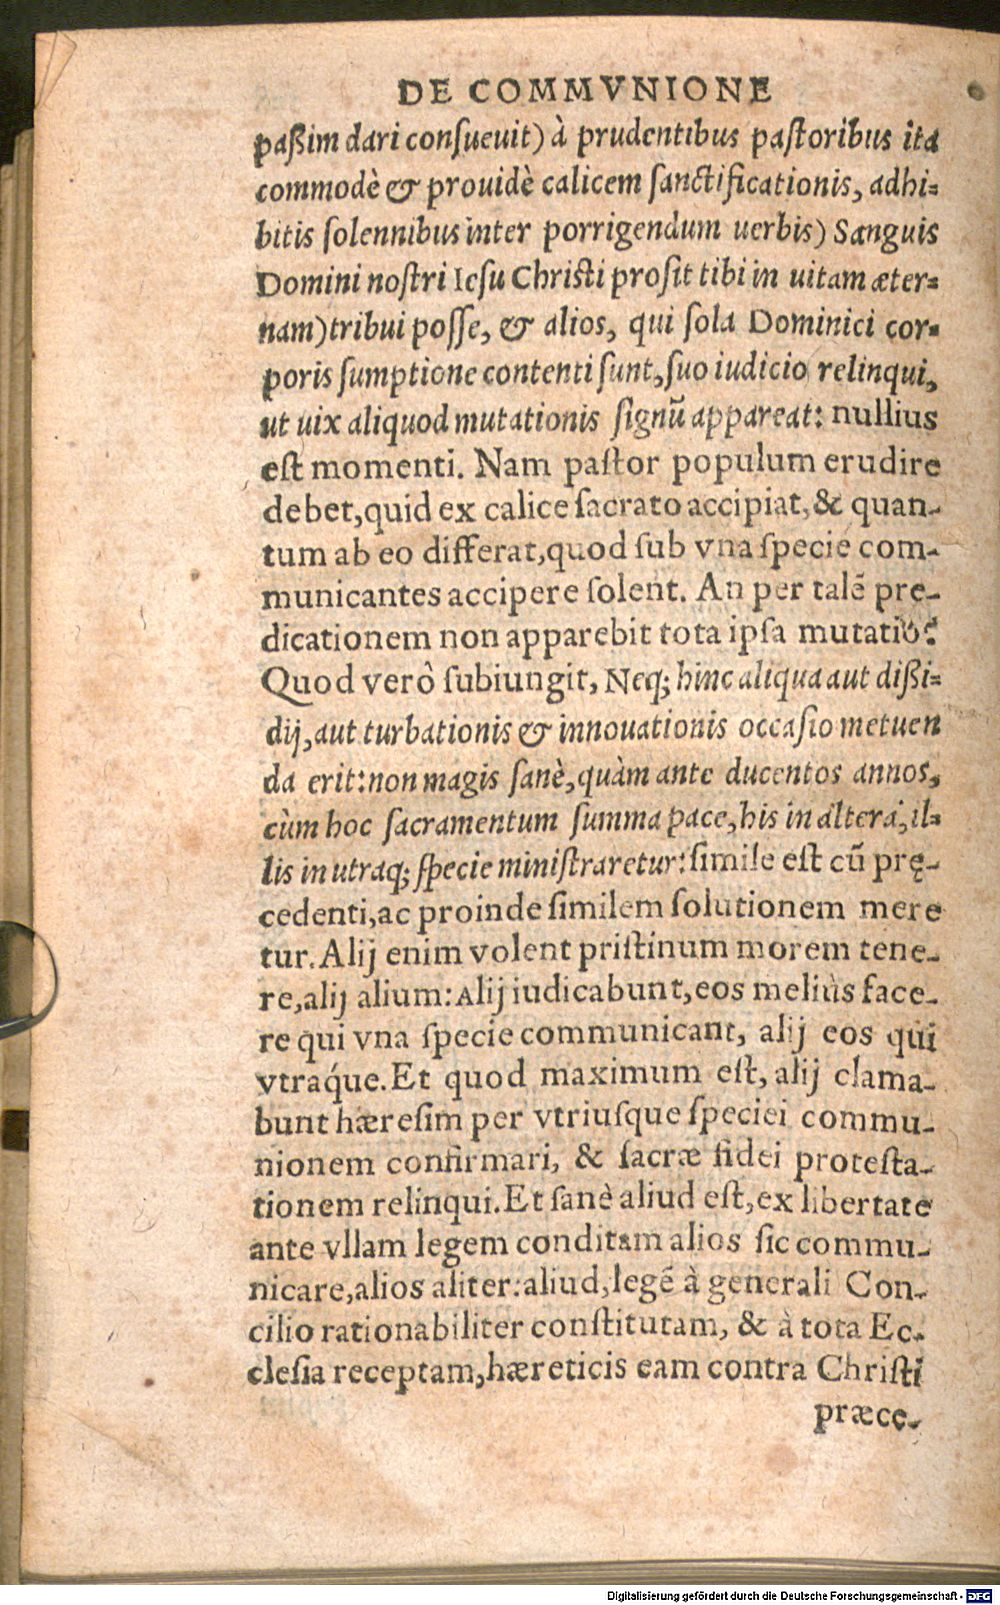 DE COMMVNIONE
paßim dari conſueuit) à prudentibus paſtoribus ita
commodè & prouidè calicem ſanctificationis, adhi-
bitis ſolennibus inter porrigendum uerbis) Sanguis
Domini noſtri Ieſu Chriſti proſit tibi in uitam æter-
nam) tribui poſſe, & alios, qui ſola Dominici cor-
poris ſumptione contenti ſunt, ſuo iudicio relinqui,
ut uix aliquod mutationis ſignũ appareat: nullius
eſt momenti. Nam paſtor populum erudire
debet, quid ex calice ſacrato accipiat, & quan-
tum ab eo differat, quod ſub vna ſpecie com-
municantes accipere ſolent. An per talẽ pre-
dicationem non apparebit tota ipſa mutatio?
Quod verò ſubiungit, Neq; hinc aliqua aut dißi-
dij, aut turbationis & innouationis occaſio metuen
da erit: non magis ſanè, quàm ante ducentos annos,
cùm hoc ſacramentum ſumma pace, his in altera, il-
lis in utraq; ſpecie miniſtraretur: simile eſt cũ prę-
cedenti, ac proinde ſimilem ſolutionem mere
tur. Alij enim volent priſtinum morem tene-
re, alij alium: Alij iudicabunt, eos meliùs face-
re qui vna ſpecie communicant, alij eos qui
vtraq́ue. Et quod maximum eſt, alij clama-
bunt hæreſim per vtriuſque ſpeciei commu-
nionem confirmari, & ſacræ fidei proteſta-
tionem relinqui. Et ſanè aliud eſt, ex libertate
ante vllam legem conditam alios ſic commu-
nicare, alios aliter: aliud, legẽ à generali Con-
cilio rationabiliter conſtitutam, & à tota Ec-
cleſia receptam, hæreticis eam contra Chriſti
præce-
Digitalisierung gefördert durch die Deutsche Forschungsgemeinschaft - DFG